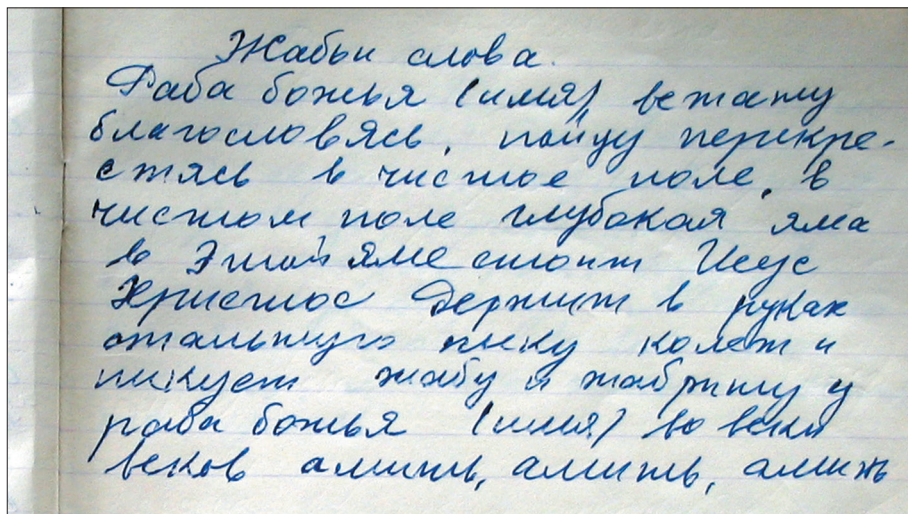 Жабьи слова.
Раба божья (имя) встану
благословясь, пойду перекре-
стясь в чистое поле, в
чистом поле глубокая яма
в этой яме стоит Исус
Христос держит в руках
стальную пику колет и
пикует жабу и жабрину у
раба божья (имя) во веки
веков аминь, аминь, аминь